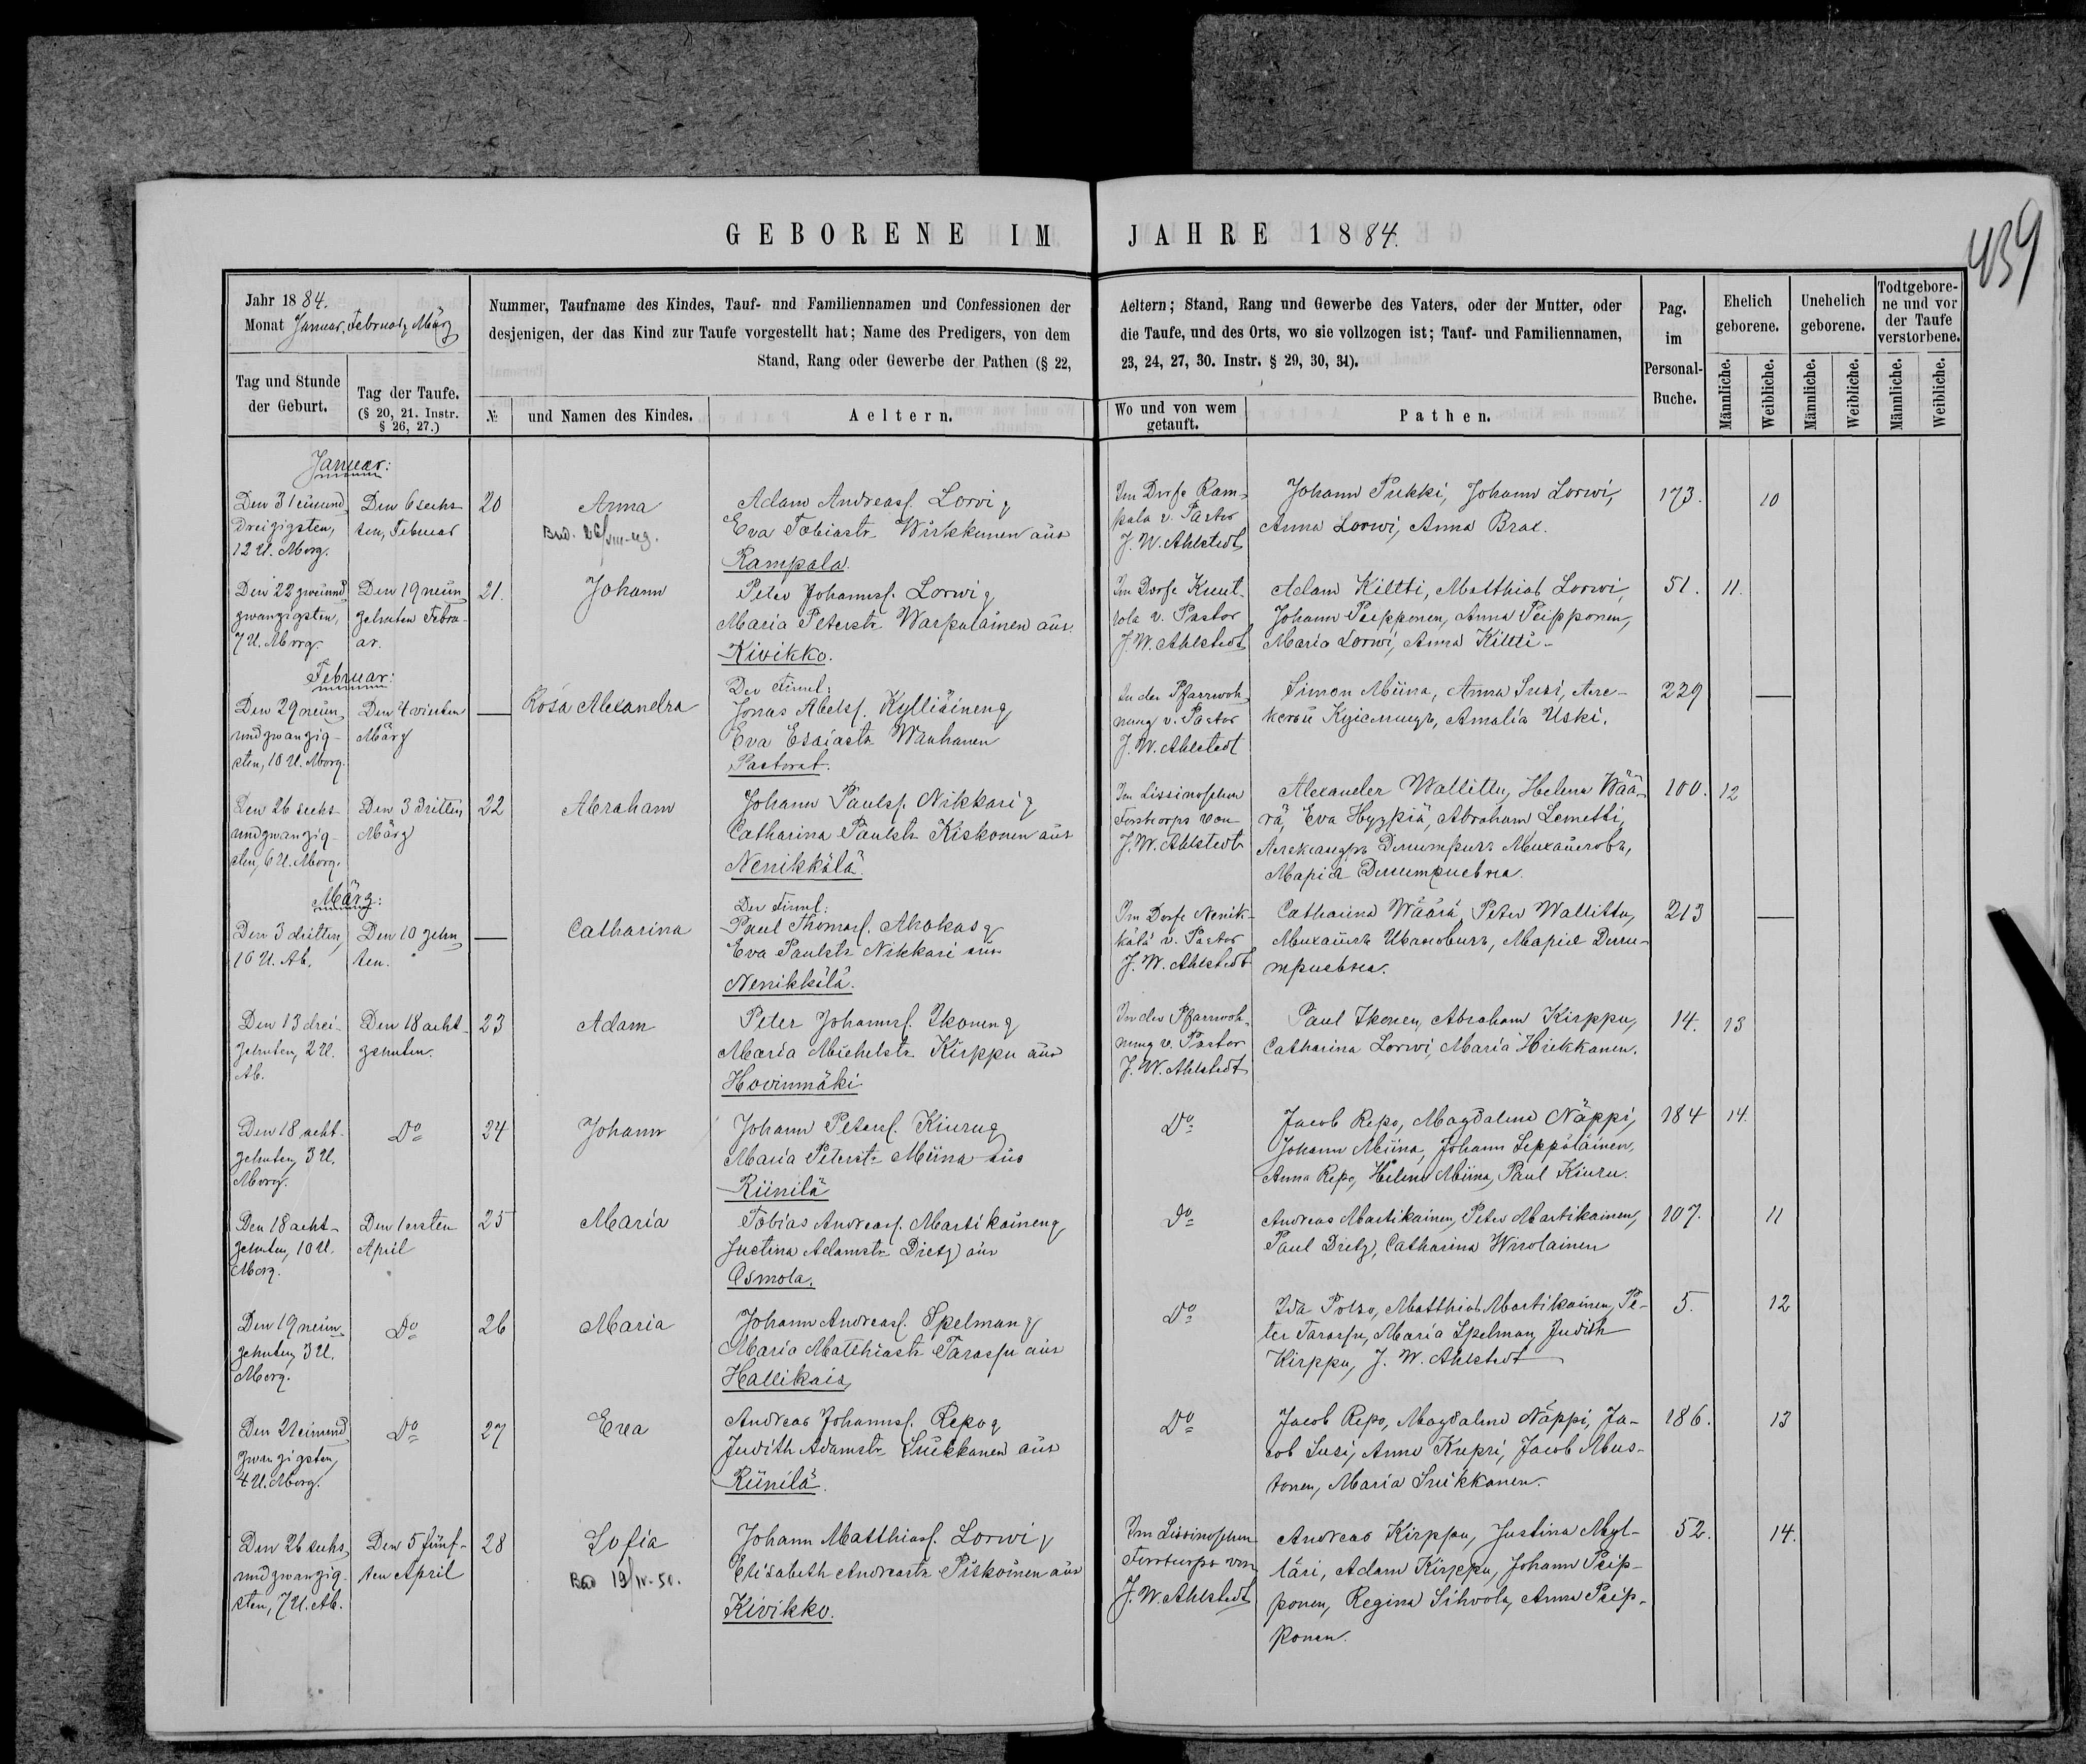 GEBORENE IM JAHRE 1884.
439
Jahr 1884.
Monat Januar, Februar, März
Nummer, Taufname des Kindes, Tauf- und Familiennamen und Confessionen der
desjenigen, der das Kind zur Taufe vorgestellt hat; Name des Predigers, von dem
Stand, Rang oder Gewerbe der Pathen (§ 22,
Aeltern; Stand, Rang und Gewerbe des Vaters, oder der Mutter, oder
die Taufe, und des Orts, wo sie vollzogen ist; Tauf- und Familiennamen,
23, 24, 27, 30. Instr. § 29, 30, 31).
Pag.
im
Personal-
Buche.
Ehelich
geborene.
Unehelich
geborene.
Todtgebore-
ne und vor
der Taufe
verstorbene.
Tag und Stunde
der Geburt.
Tag der Taufe.
(§ 20, 21. Instr.
§ 26, 27.)
№
und Namen des Kindes.
Aeltern.
Wo und von wem
getauft.
Pathen.
Männliche.
Weibliche.
Männliche.
Weibliche.
Männliche.
Weibliche.
Januar:
Den 31 einund
dreizigsten,
12 U. Morg.
Den 6 sechs
ten, Februar
20
Anna
26/VIII-49.
Adam Andreass. Lorvi &
Eva Tobiastr. Wirkkunen aus
Rampala.
Im Dorfe Ram-
pala v. Pastor
J. W. Ahlstedt
Johann Pukki, Johann Lorwi,
Anna Lorwi, Anna Brax.
173.
10
Den 22 zweiund
zwanzigsten,
7 U. Morg.
Den 19 neun
zehnten Febru-
ar.
21.
Johann
Peter Johannss. Lorwi &
Maria Peterstr. Warpulainen aus
Kivikko.
Im Dorfe Knut-
rola v. Pastor
J. W. Ahlstedt
Adam Kiltti, Matthias Lorwi,
Johann Peipponen, Anna Peipponen,
Maria Lorwi, Anna Kiltti-
51.
11.
Februar:
Den 29 neun
undzwanzig-
sten, 10 U. Morg.
Den 4 vierten
März
Rosa Alexandra
Der Finnl:
Jonas Abels. Kylliäinen &
Eva Esaiastr. Wanhanen
Pastorat.
In der Pfarrwoh-
nung v. Pastor
J. W. Ahlstedt
Simon Miina, Anna Susi, Але-
ксѣй Амalia Uski.
229
Den 26 sechs-
undzwanzig-
sten, 6 U. Morg.
Den 3 dritten
März
22
Abraham
Johann Paulss. Nikkari &
Catharina Paulstr. Kiskonen aus
Nenikkälä.
Im Lissinoschen
Forstcorps von
J. W. Ahlstedt
Alexander Wallittu, Helena Wää-
rä, Eva Hyypiä, Abraham Lemetti,
Александръ Михайловъ,
Марiя Дмитриевна.
100.
12
März:
Den 3 dritten
10 U. Ab.
Den 10 zehn
ten.
Catharina
Der Finnl:
Paul Thomass. Ahokas &
Eva Paulstr. Nikkari aus
Nenikkälä.
Im Dorfe Nenik-
kälä v. Pastor
J. W. Ahlstedt
Catharina Wäärä, Peter Wallittu,
Михаилъ Ивановичъ, Марiя Дми-
триевна.
213
Den 13 drei-
zehnten, 2 U.
Ab.
Den 18 acht-
zehnten.
23
Adam
Peter Johannss. Ikonen &
Maria Michelstr. Kirppu aus
Hovinmäki
In der Pfarrwoh-
nung v. Pastor
J. W. Ahlstedt
Paul Ikonen, Abraham Kirppu,
Catharina Lorwi, Maria Hiekkanen.
14.
13
Den 18 acht-
zehnten, 3 U.
Morg.
Do
24
Johann
Johann Peterss. Kiuru &
Maria Peterstr. Miina aus
Riinilä
Do
Jacob Repo, Magdalena Näppi,
Johann Miina, Johann Leppäläinen,
Anna Repo, Helena Miina, Paul Kiuru.
184
14.
Den 18 acht-
zehnten, 10 U.
Morg.
Den 1 ersten
April
25
Maria
Tobias Andreass. Martikainen &
Justina Adamstr. Dietz aus
Osmola.
Do
Andreas Martikainen, Peter Martikainen,
Paul Dietz, Catharina Wirolainen
107.
11
Den 19 neun
zehnten, 3 U.
Morg.
Do
26
Maria
Johann Andreass. Spelman &
Maria Matthiastr. Tarassu aus
Hallikais,
Do
Ida Polso, Matthias Martikainen, Pe-
ter Tarassu, Maria Spelman, Judith
Kirppu, J. W. Ahlstedt
5.
12
Den 21 einund
zwanzigsten,
4 U. Morg.
Do
27
Eva
Andreas Johannss. Repo &
Judith Adamstr. Suikkanen aus
Riinilä.
Do
Jacob Repo, Magdalena Näppi, Ja-
cob Susi, Anna Kupri, Jacob Mus-
tonen, Maria Suikkanen.
186.
13
Den 26 sechs
undzwanzig-
sten, 7 U. Ab.
Den 5 fünf-
ten April
28
Sofia
19/IV-50.
Johann Matthiass. Lorwi &
Elisabeth Andreastr. Piskoinen aus
Kivikko.
Im Lissinoschen
Forstcorps von
J. W. Ahlstedt
Andreas Kirppu, Justina Myl-
läri, Adam Kirppu, Johann Peip-
ponen, Regina Sihvola, Anna Peip-
ponen.
52.
14.